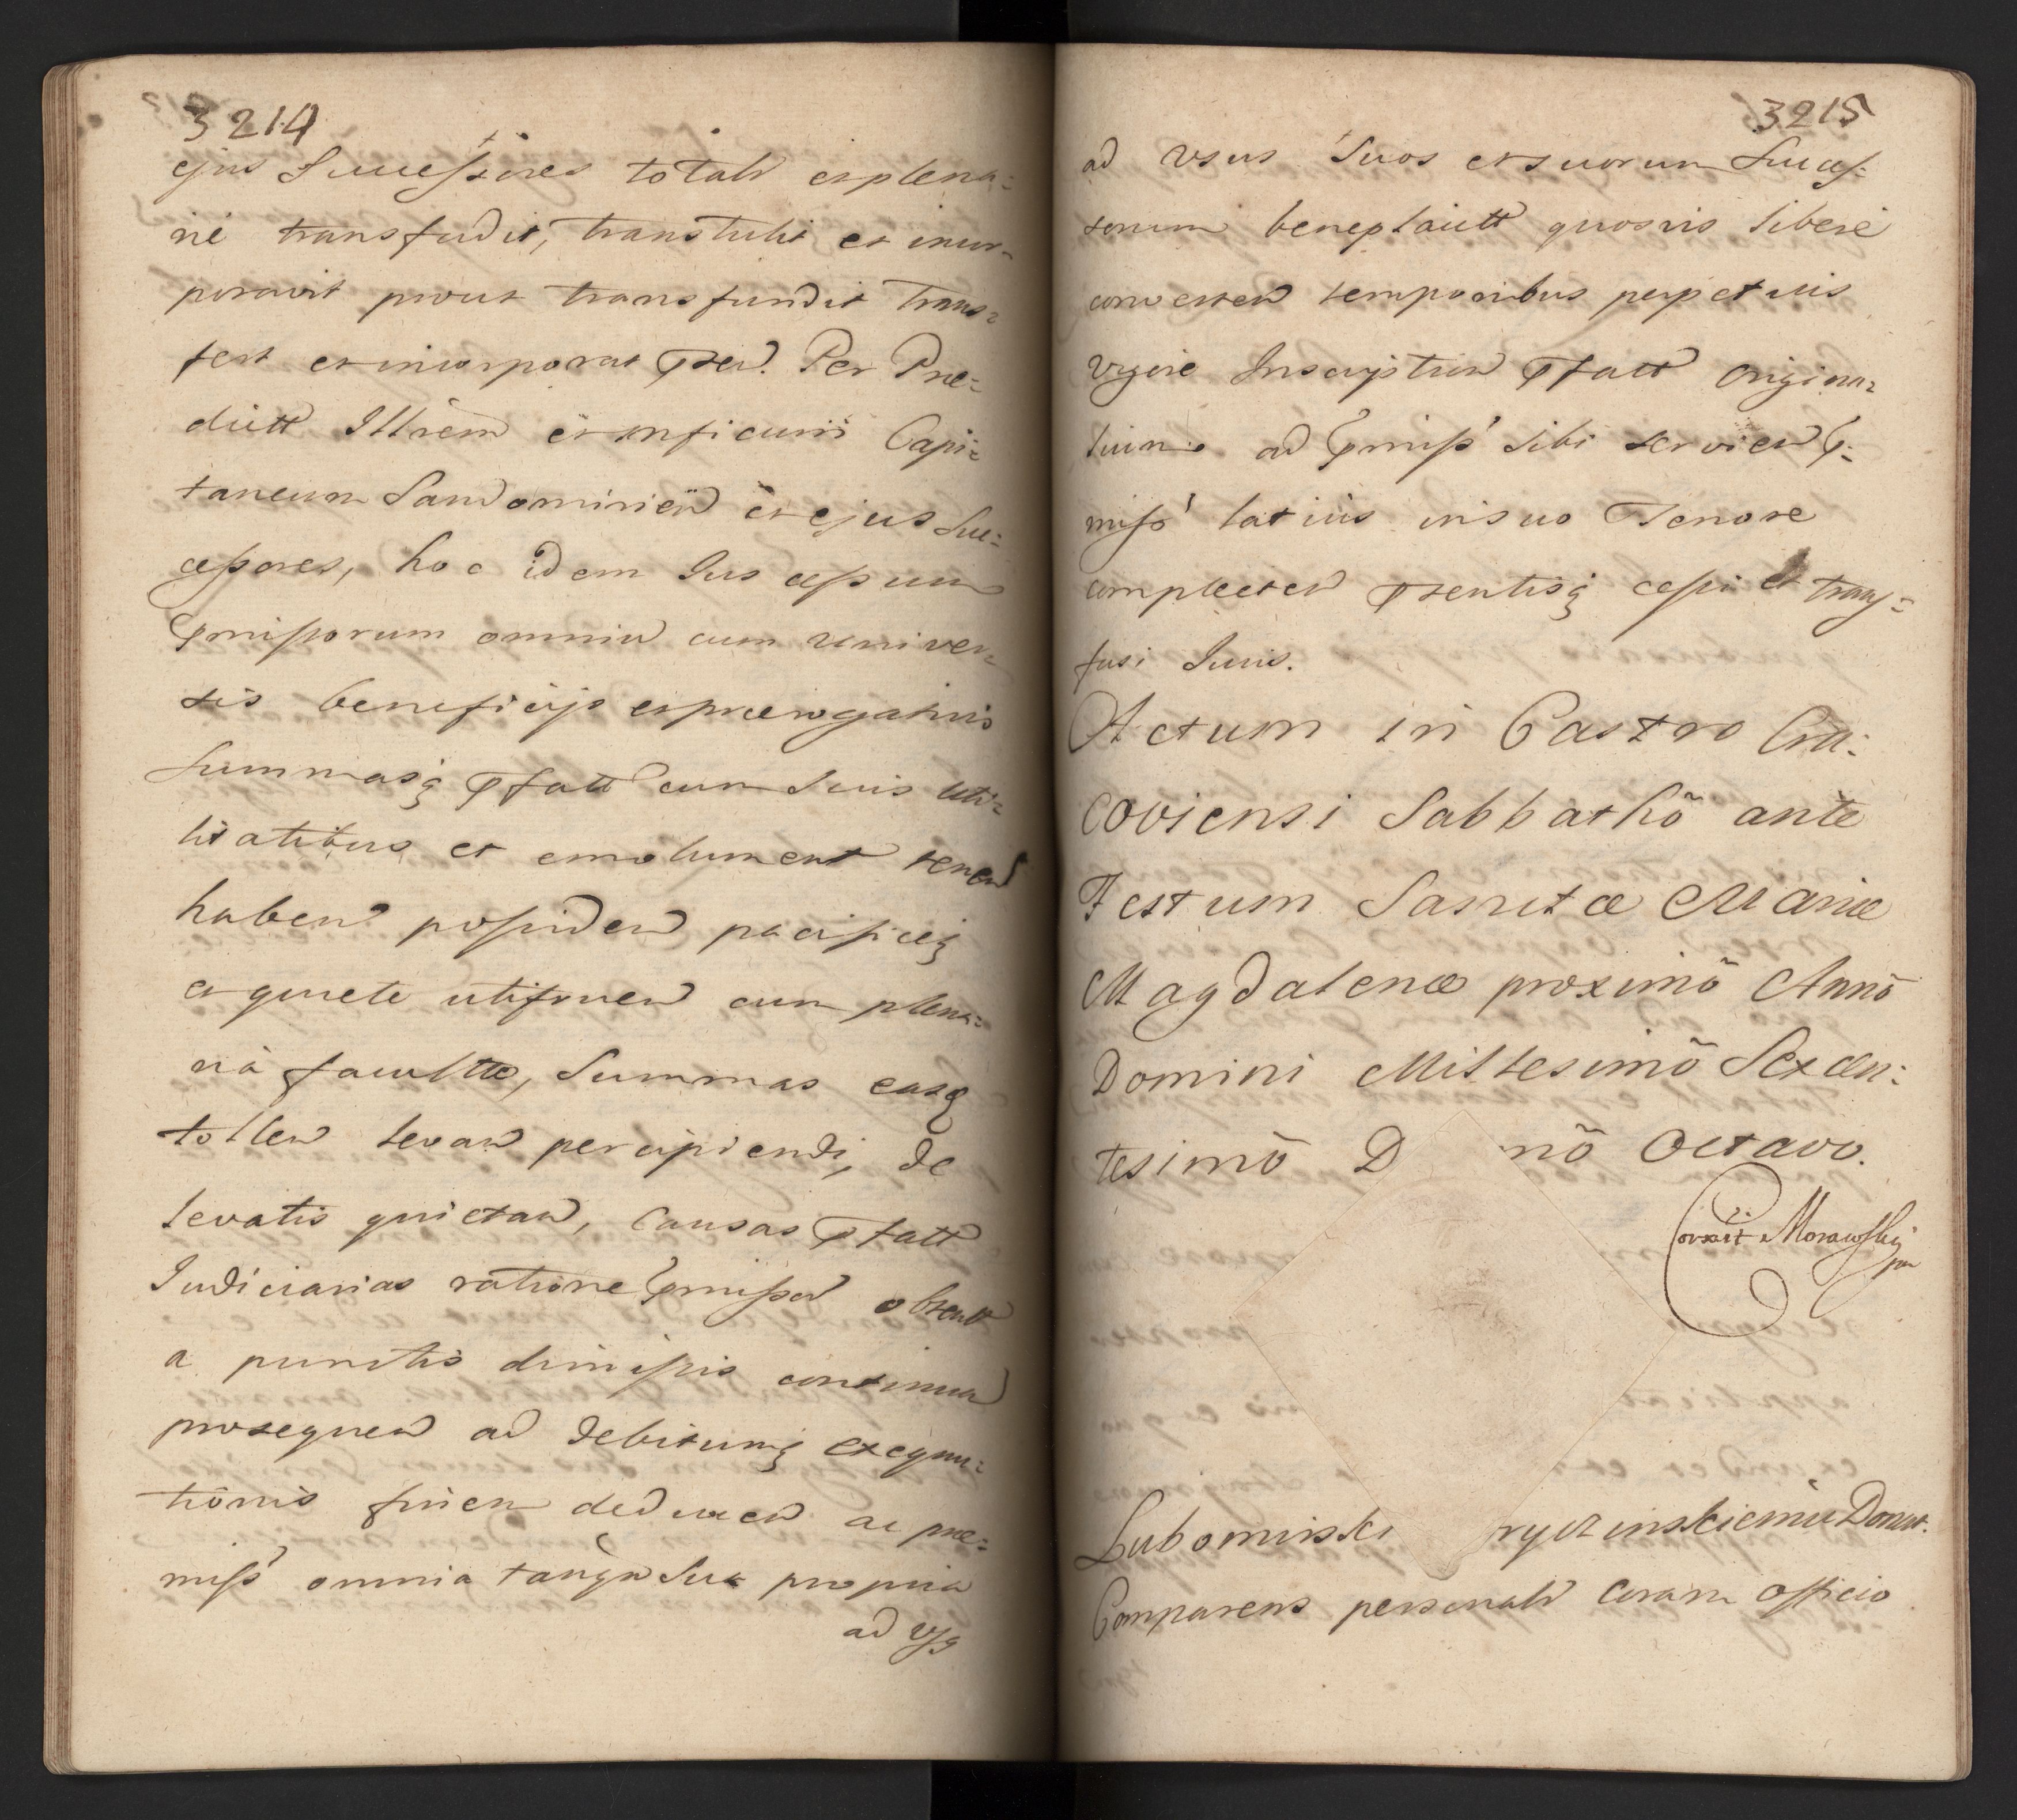 3214
ejus Successores totalr explena=
rie transfudit, transtulit et incor=
poravit prout transfundit trans=
fert et incorporat pten. Per Prae=
dictt Illrem et mficum Capi=
taneum Sandomirien et ejus Suc=
cessores, hoc idem Jus cessum
pmissorum omniu cum univer=
sis beneficijs et praerogativis
Summasq pfatt cum suis uti=
litatibus et emolument tenen
haben possiden pacificeq
et quiete utifruen cum plena=
ria facultte, Summas easq
tollen levan percipiendi, de
levatis quietan, Causas pfatt
Judiciarias ratione pmissor obtent
a punctis dimissis continuan
prosequen ad debitumq exequu=
tionis finem deducen ac prae=
miss omnia tanqn sua propria
ad vsq
3215
ad vsus suos et suorum Succes=
sorum beneplacitt quosvis libere
conuerten temporibus perpetuis
vigore Inscription pfatt origina=
lium ad pmiss sibi servien p=
miss latius in suo Tenore
complecten ptentisq cessi et trans=
fusi Juris.
Actum in Castro Cra=
coviensi Sabbathõ ante
Festum Sanctæ Mariæ
Magdalenæ proximõ Annõ
Domini Millesimõ Sexcen=
tesimõ D nõ Octavo.
Correxit Morawski
mp
Lubomirski ryczinskiemu Donat.
Comparens personalr coram officio